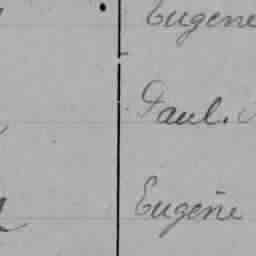 Eugene
Paul.
Eugene